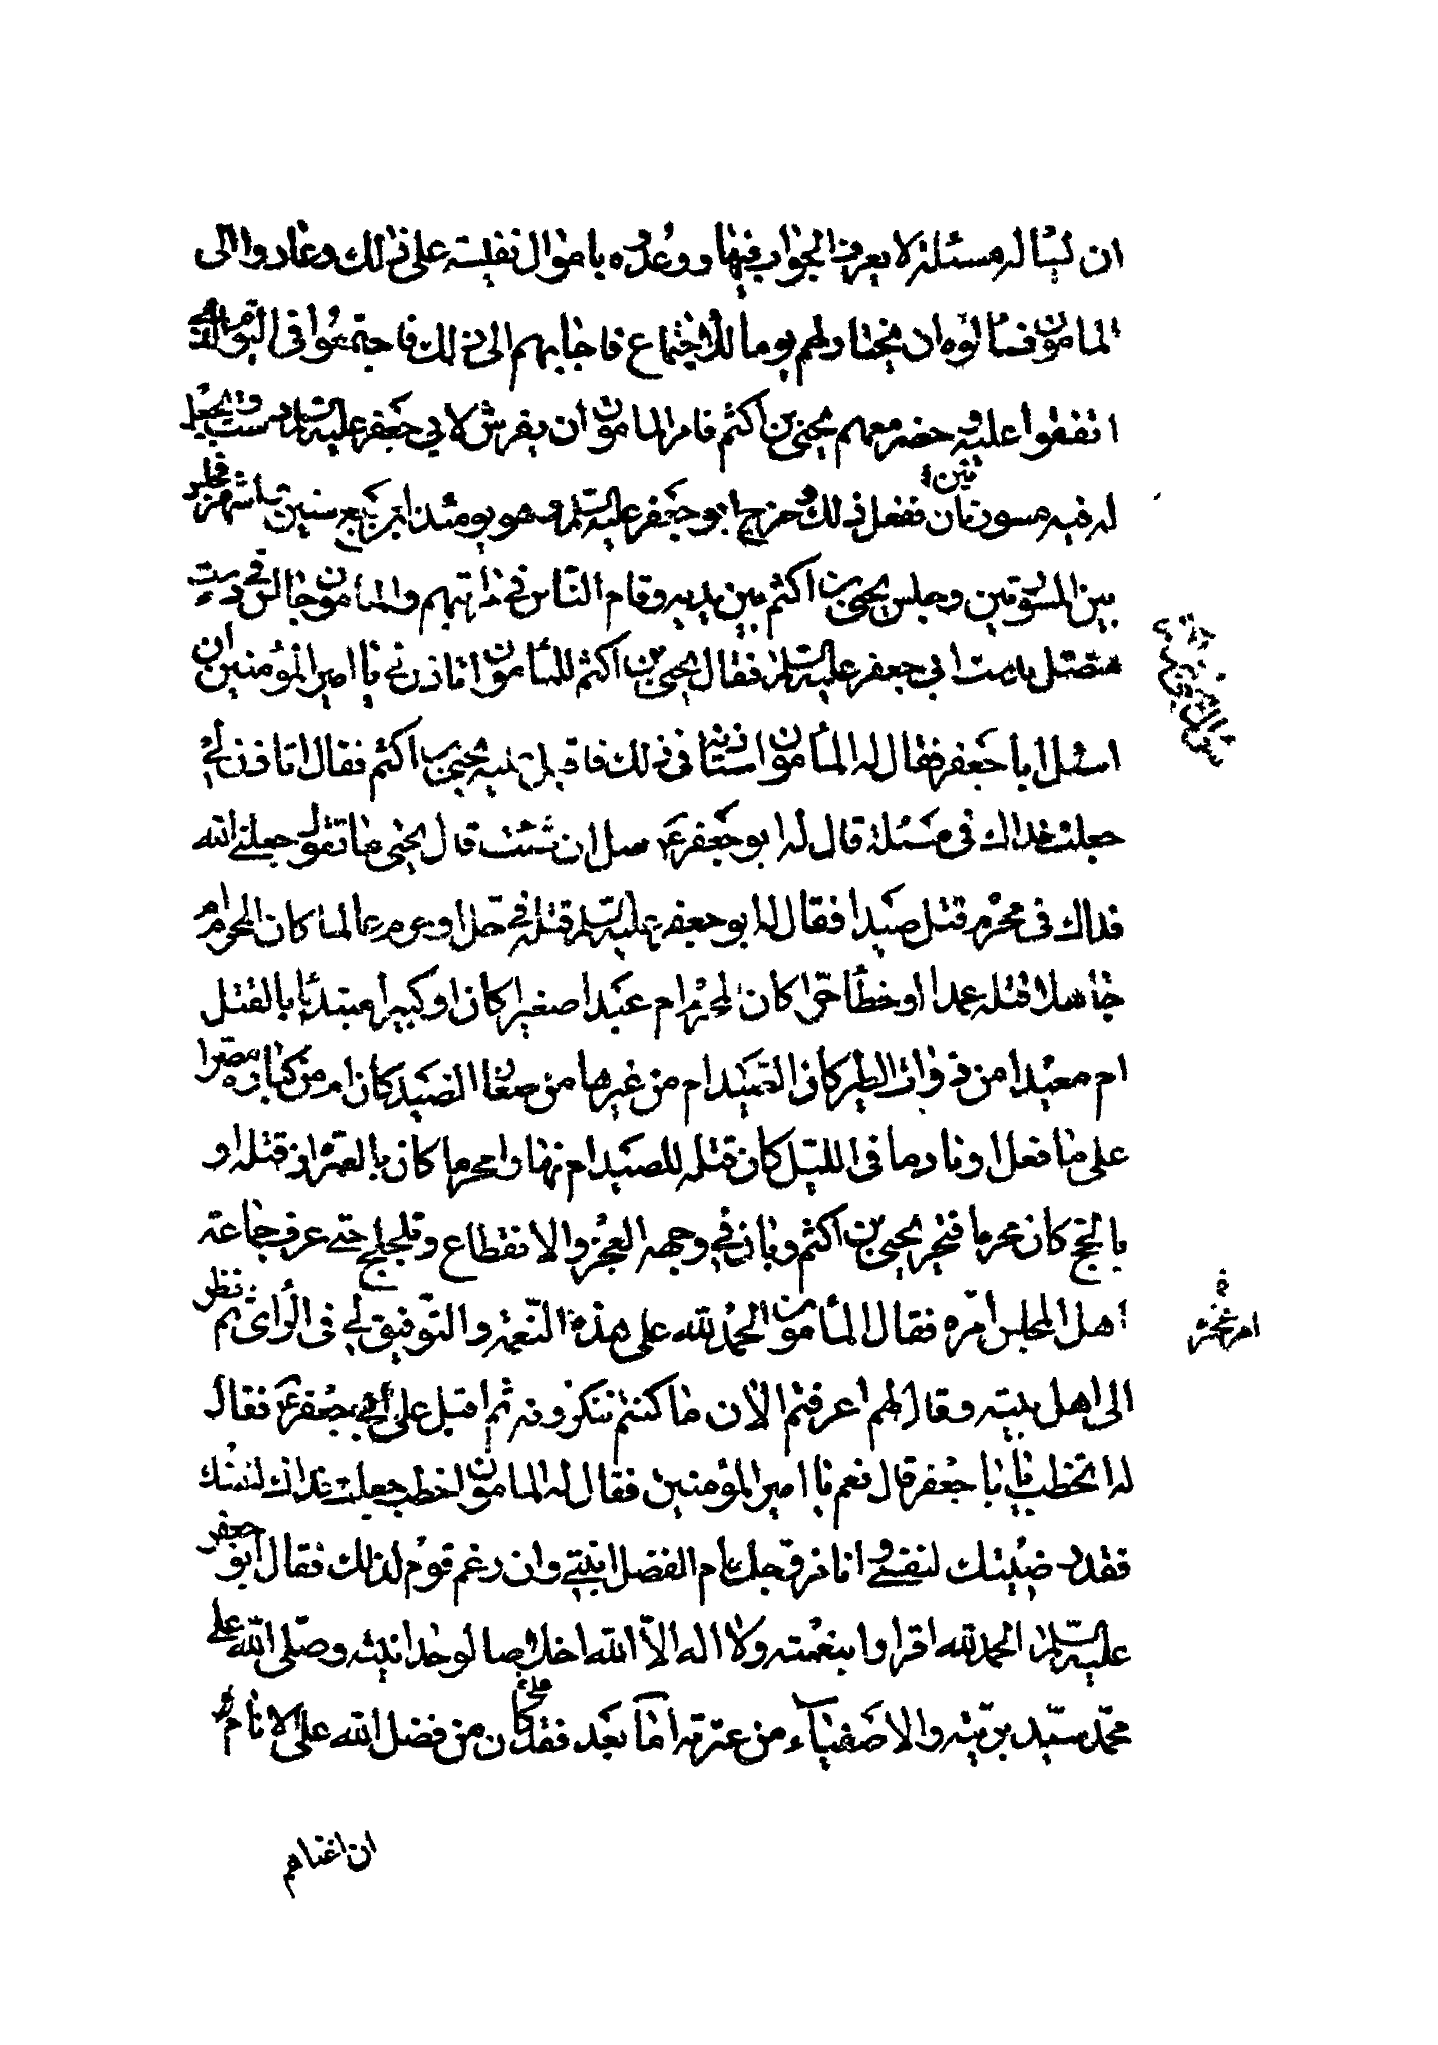 ان يسأله مسئلة لا يعرف الجواب فيها ووعدوه باموال نفيسة على ذلك وعادوا الى
المامون فسألوه ان يختار لهم يوما للاجتماع فاجابهم الى ذلك فاجتمعوا في اليوم الذي
اتفقوا عليه وحضر معهم يحيى بن اكثم فامر المامون ان يفرش لابي جعفر عليه السلام دست ويجعل
له فيه مسورتان ففعل ذلك وخرج ابو جعفر عليه السلم وهو يومئذ ابن تسع سنين واشهر فجلس
تين
بين المسورتين وجلس يحيى بن اكثم بين يديه وقام الناس في مراتبهم والمامون جالس في دست
متصل بدست ابي جعفر عليه السلم فقال يحيى بن اكثم للمأمون اتاذن لي يا امير المؤمنين ان
اسئل ابا جعفر فقال له المأمون استاذنه في ذلك فاقبل عليه يحيى بن اكثم فقال اتاذن لي
جعلت فداك في مسئلة قال له ابو جعفر ع سل ان شئت قال يحيى ما تقول جعلني الله
فداك في محرم قتل صيدا فقال له ابو جعفر عليه السلم قتله في حل او حرم عالما كان المحرم ام
جاهلا قتله عمدا او خطأ حرا كان المحرم ام عبدا صغيرا كان او كبيرا مبتدئا بالقتل
ام معيدا من ذوات الطير كان الصيد ام من غيرها من صغار الصيد كان ام من كباره مصرا
على ما فعل او نادما في الليل كان قتله للصيد ام نهارا محرما كان بالعمرة اذ قتله او
بالحج كان محرما فتحير يحيى بن اكثم وبان في وجهه العجز والانقطاع وتلجلج حتى عرف جماعة
اهل المجلس امره فقال المأمون الحمد لله على هذه النعمة والتوفيق لي في الرأي ثم نظر
الى اهل بيته وقال لهم اعرفتم الان ما كنتم تنكرونه ثم اقبل على ابي جعفر ع فقال
له اتخطب يا با جعفر قال نعم يا امير المؤمنين فقال له المامون اخطب جعلت فداك لنفسك
فقد رضيتك لنفسي وانا مزوجك ام الفضل ابنتي وان رغم قوم لذلك فقال ابو جعفر
عليه السلم الحمد لله اقرارا بنعمته ولا اله الا الله اخلاصا لوحدانيته وصلى الله على
محمد سيد بريته والاصفياء من عترته اما بعد فقد كان من فضل الله على الانام
ان اغناهم